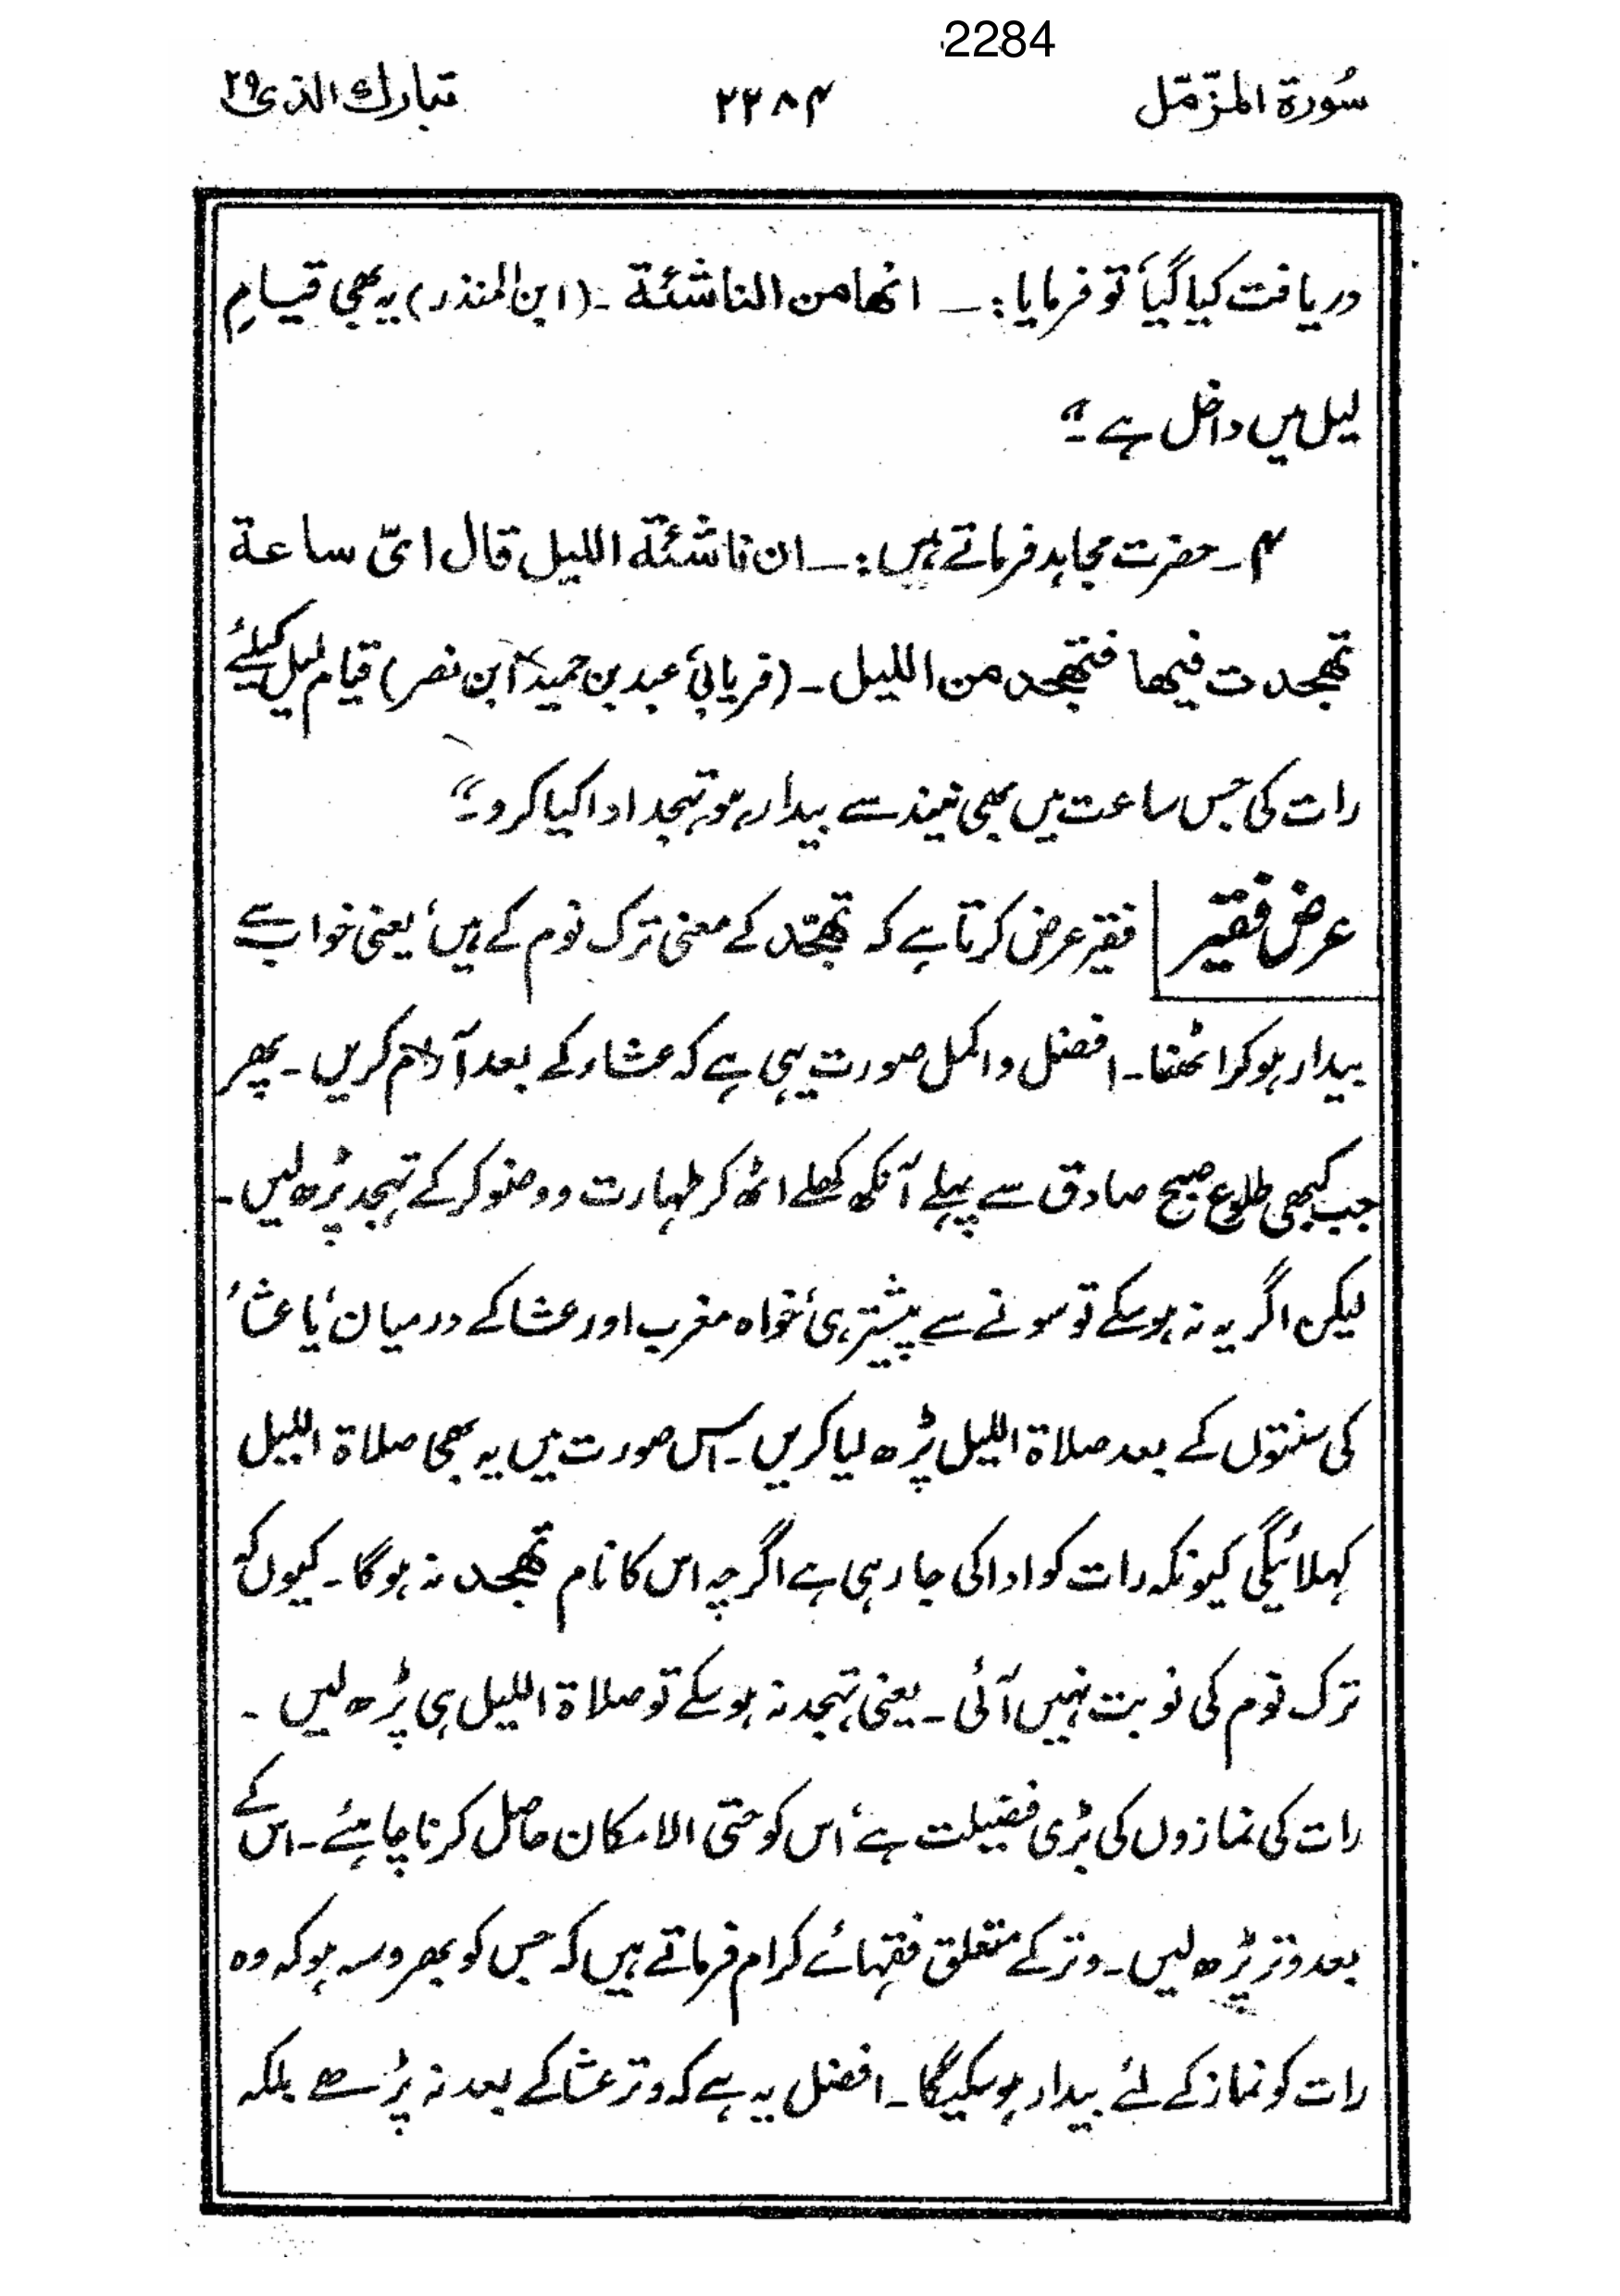 2284
سُورة المزّمّل ۲۲۸۴ تبارك الذی ۲۹
دریافت کیا گیا، تو فرمایا :۔ انھا من الناشئة ۔ (ابن المنذر) یہ بھی قیامِ
لیل میں داخل ہے ۔“
۴۔ حضرت مجاہد فرماتے ہیں :۔ ان ناشئة اللیل قال ایّ ساعة
تھجدت فیھا فتھجد من اللیل ۔ (فریابی، عبد بن حمید، ابن نصر) قیام لیل کیلئے
رات کی جس ساعت میں بھی نیند سے بیدار ہو، تہجد ادا کیا کرو ۔“
عرض فقیر فقیر عرض کرتا ہے کہ تھجّد کے معنی ترک نوم کے ہیں، یعنی خواب سے
بیدار ہو کر اٹھنا ۔ افضل و اکمل صورت یہی ہے کہ عشاء کے بعد آرام کریں ۔ پھر
جب کبھی طلوع صبح صادق سے پہلے آنکھ کھلے اٹھ کر طہارت و وضو کر کے تہجد پڑھ لیں ۔
لیکن اگر یہ نہ ہو سکے تو سونے سے پیشتر ہی، خواہ مغرب اور عشا کے درمیان، یا عشاء
کی سنتوں کے بعد صلاة اللیل پڑھ لیا کریں ۔ اس صورت میں یہ بھی صلاة اللیل
کہلائیگی کیونکہ رات کو ادا کی جا رہی ہے اگرچہ اس کا نام تھجد نہ ہوگا ۔ کیوں کہ
ترک نوم کی نوبت نہیں آئی ۔ یعنی تہجد نہ ہو سکے تو صلاة اللیل ہی پڑھ لیں ۔
رات کی نمازوں کی بڑی فضیلت ہے، اس کو حتی الامکان حاصل کرنا چاہئے ۔ اس کے
بعد وتر پڑھ لیں ۔ وتر کے متعلق فقہائے کرام فرماتے ہیں کہ جس کو بھروسہ ہو کہ وہ
رات کو نماز کے لئے بیدار ہو سکیگا ۔ افضل یہ ہے کہ وتر عشا کے بعد نہ پڑھے بلکہ